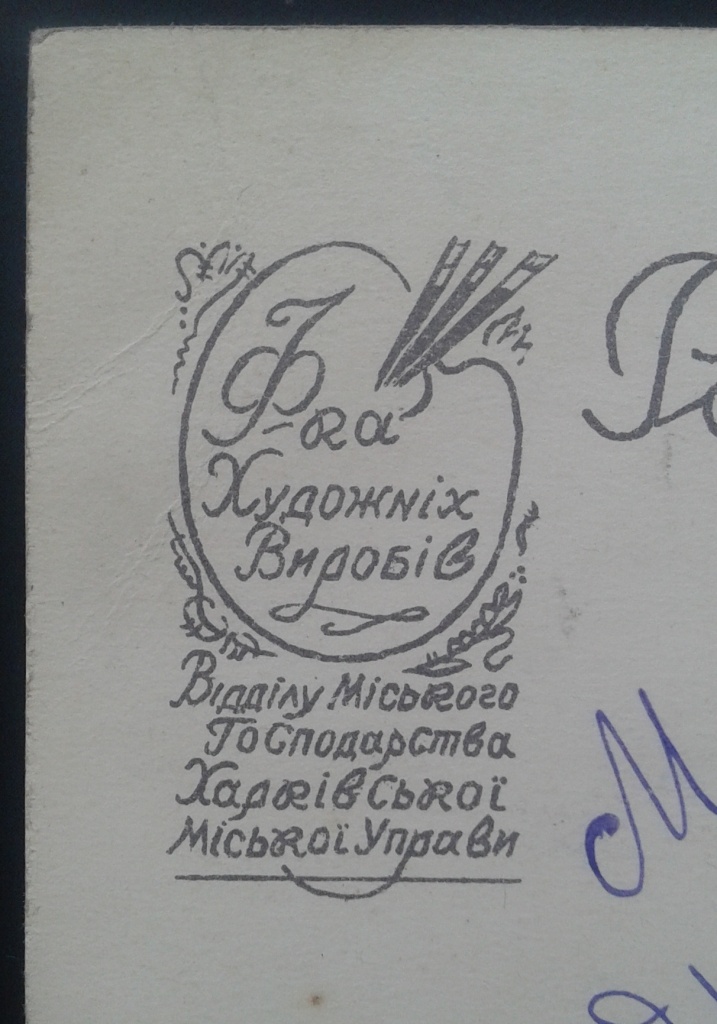 Ф-ка
Художніх
Виробів
Відділу Міського
Господарства
Харківської
Міської Управи